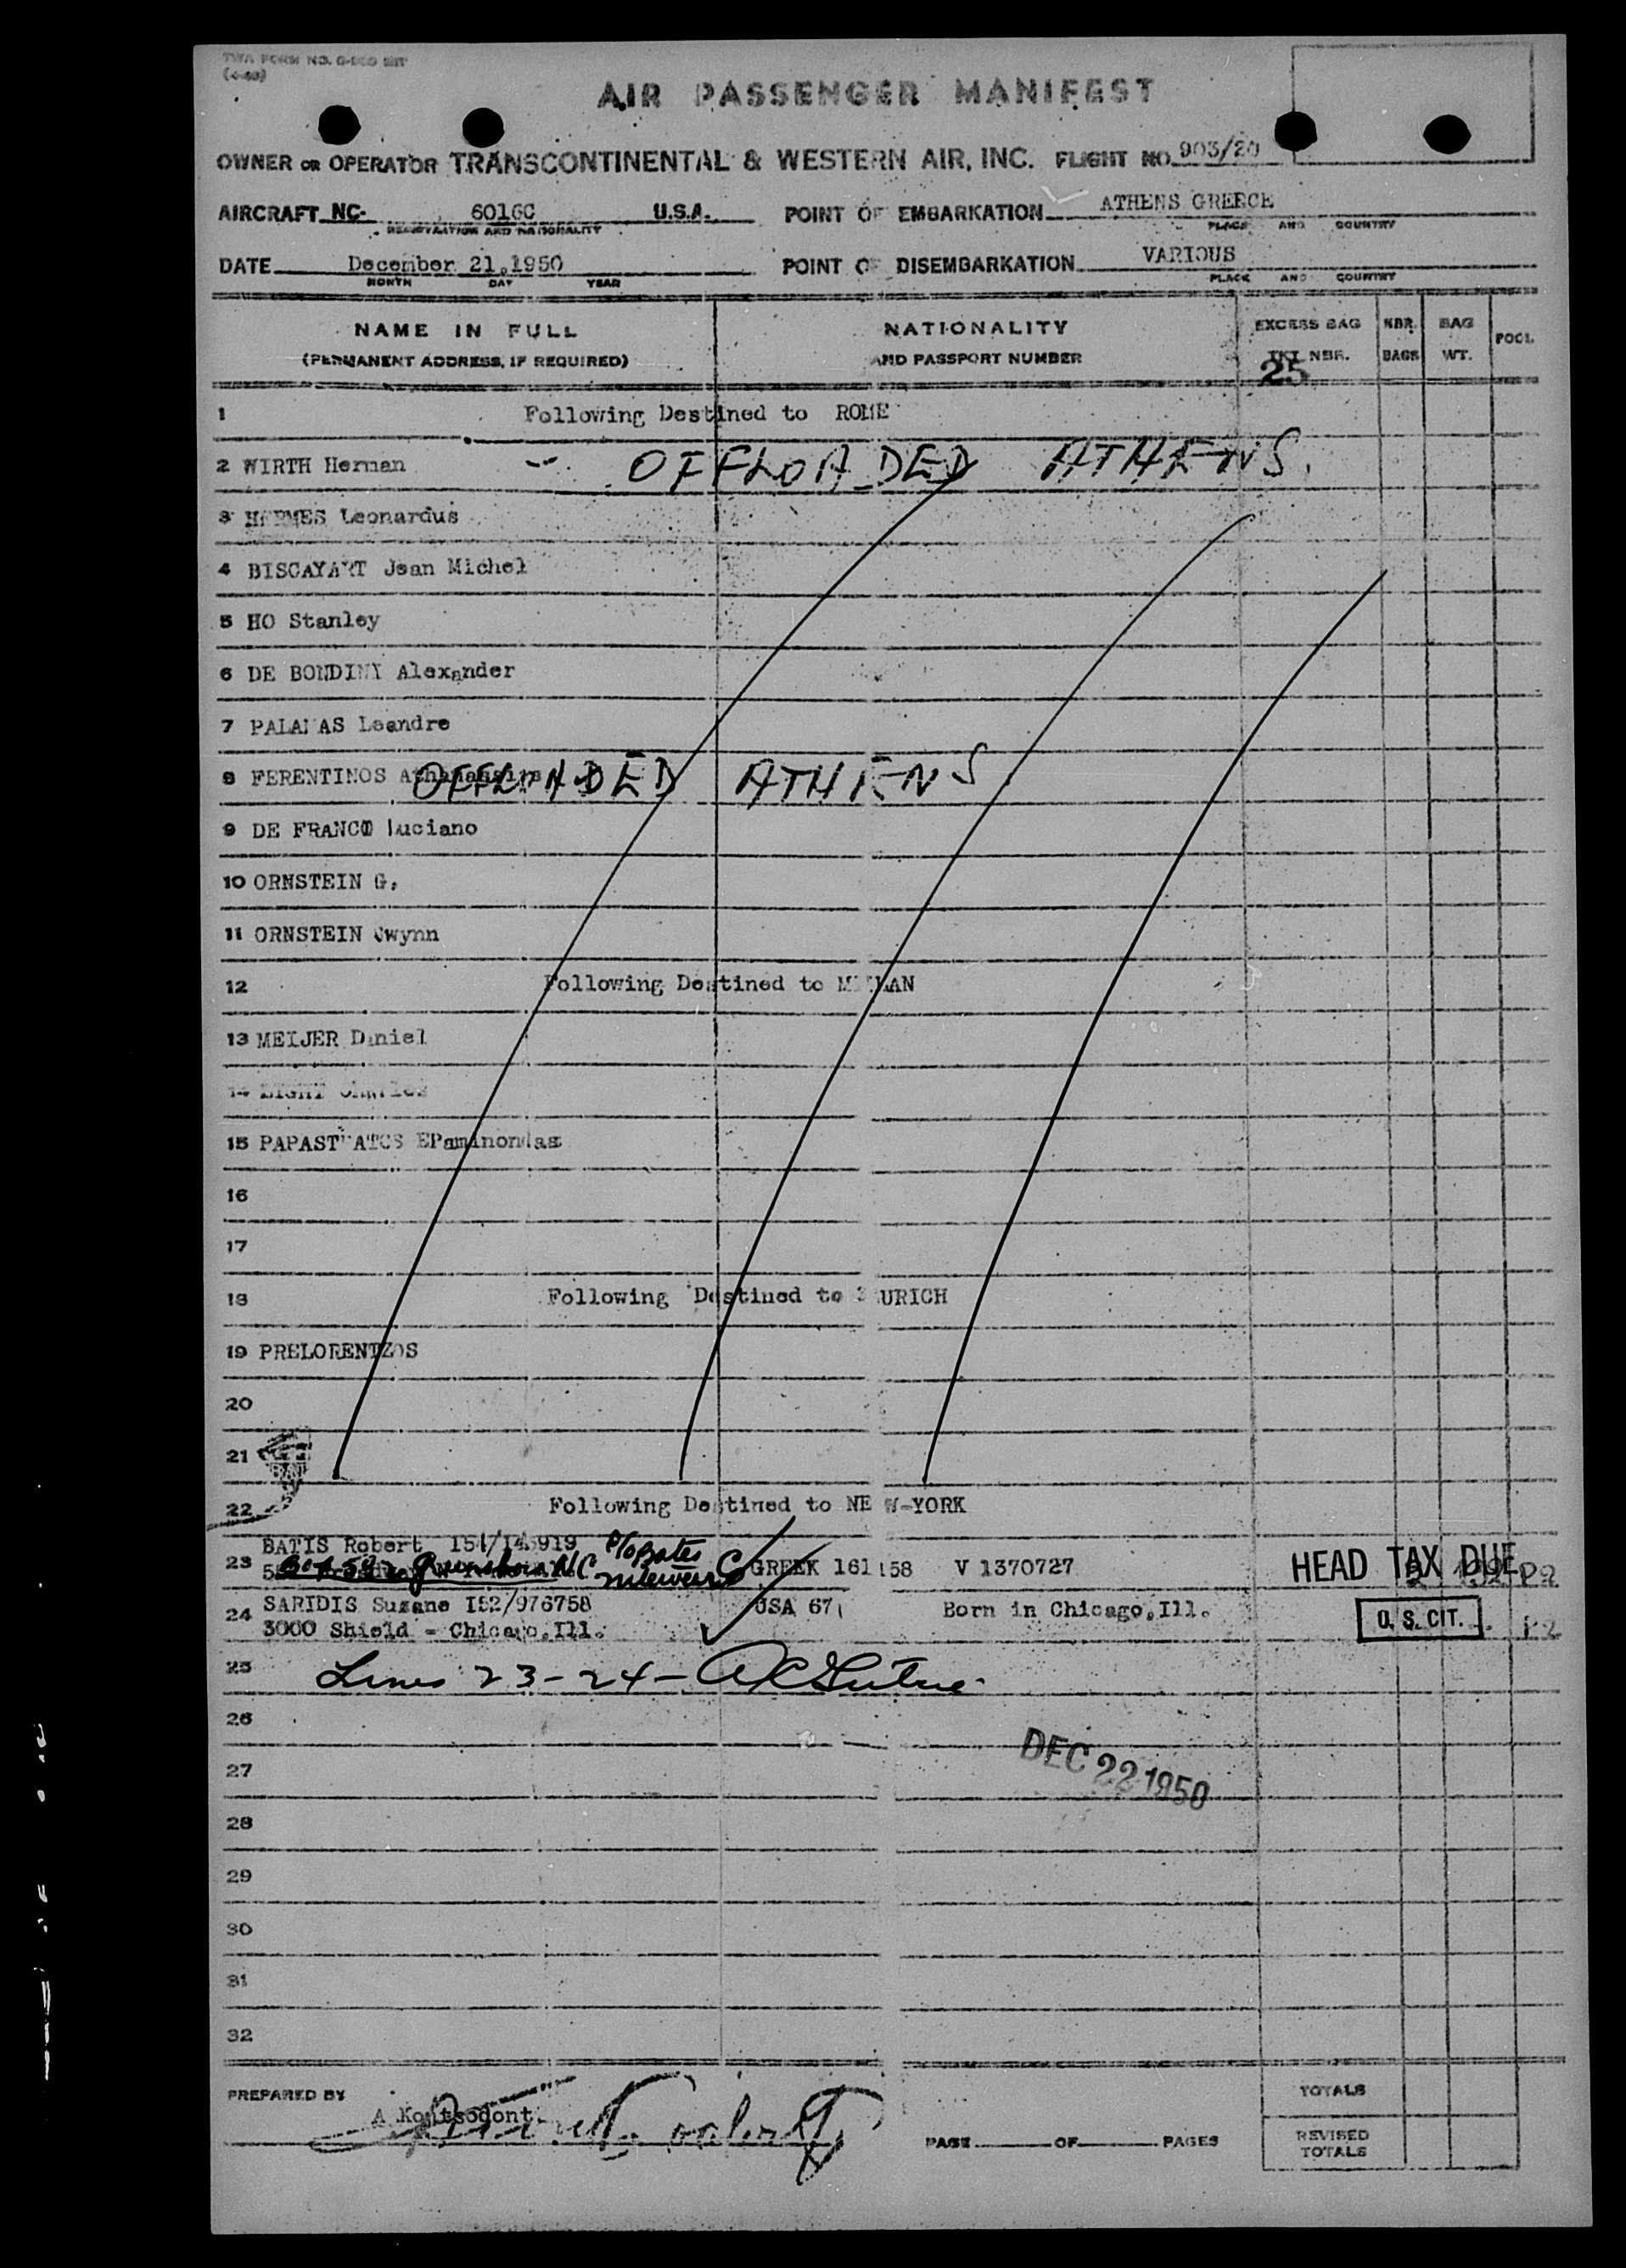 AIR PASSENGER MANIFEST
OWNER OR OPERATOR TRANSCONTINENTAL & WESTERN AIR, INC. FLIGHT NO. 903/20
AIRCRAFT NC- 6016C U.S.A. POINT OF EMBARKATION ATHENS GREECE
REGISTRATION AND NATIONALITY PLACE AND COUNTRY
DATE December 21,1950 POINT OF DISEMBARKATION VARIOUS
MONTH DAY YEAR PLACE AND COUNTRY
NAME IN FULL NATIONALITY EXCESS BAG NBR. BAG POOL
(PERMANENT ADDRESS, IF REQUIRED) AND PASSPORT NUMBER TKT NBR. BAGS WT.
25
1 Following Destined to ROME
2 WIRTH Herman OFFLOADED ATHENS.
3 HERMES Leonardus
4 BISCAYART Jean Michel
5 HO Stanley
6 DE BONDINY Alexander
7 PALAMAS Leandre
8 FERENTINOS OFFLOADED ATHENS
9 DE FRANCO Luciano
10 ORNSTEIN G.
11 ORNSTEIN Gwynn
12 Following Destined to MILAN
13 MEIJER Daniel
14 LIGHT Charles
15 PAPASTRATOS EPaminondas
16
17
18 Following Destined to ZURICH
19 PRELORENTZOS
20
21
22 Following Destined to NEW-YORK
BATIS Robert 151/145919 c/o Bates
23 Box 582 Greensboro N.C. GREEK 161158 V 1370727 HEAD TAX DUE
24 SARIDIS Suzane I52/976758 USA 67 Born in Chicago,Ill. U. S. CIT.
3000 Shield - Chicago,Ill.
25 Lines 23-24-
26
DEC 22 1950
27
28
29
30
31
32
PREPARED BY TOTALS
A Kontsodont
PAGE OF PAGES REVISED TOTALS